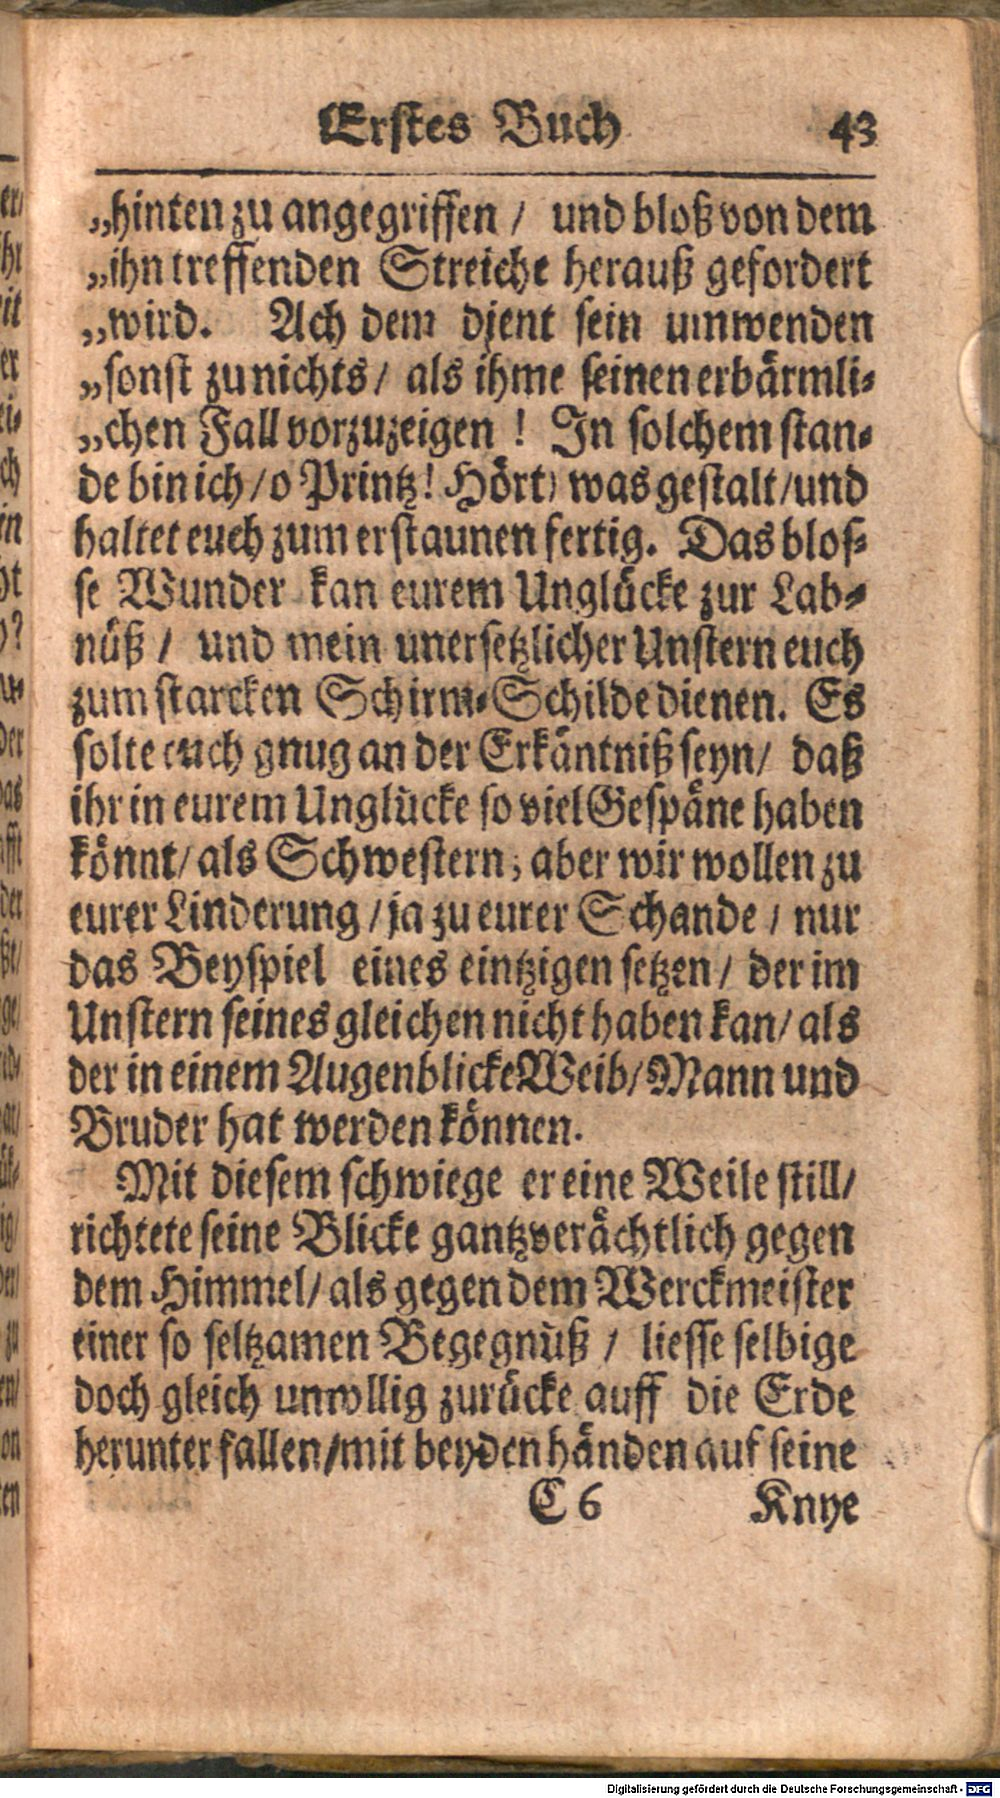 Erstes Buch 43
„hinten zu angegriffen / und bloß von dem
„ihn treffenden Streiche herauß gefordert
„wird. Ach dem djent sein umwenden
„sonst zu nichts / als ihme seinen erbärmli-
„chen Fall vorzuzeigen ! In solchem stan-
de bin ich / o Printz! Hört) was gestalt / und
haltet euch zum erstaunen fertig. Das blos-
se Wunder kan eurem Unglücke zur Lab-
nüß / und mein unersetzlicher Unstern euch
zum starcken Schirm-Schilde dienen. Es
solte euch gnug an der Erkäntniß seyn / daß
ihr in eurem Unglücke so viel Gespäne haben
könnt / als Schwestern; aber wir wollen zu
eurer Linderung / ja zu eurer Schande / nur
das Beyspiel eines eintzigen setzen / der im
Unstern seines gleichen nicht haben kan / als
der in einem Augenblicke Weib / Mann und
Bruder hat werden können.
Mit diesem schwiege er eine Weile still /
richtete seine Blicke gantz verächtlich gegen
dem Himmel / als gegen dem Werckmeister
einer so seltzamen Begegnüß / liesse selbige
doch gleich unwllig zurücke auff die Erde
herunter fallen / mit beyden händen auf seine
C 6 Knye
Digitalisierung gefördert durch die Deutsche Forschungsgemeinschaft - DFG